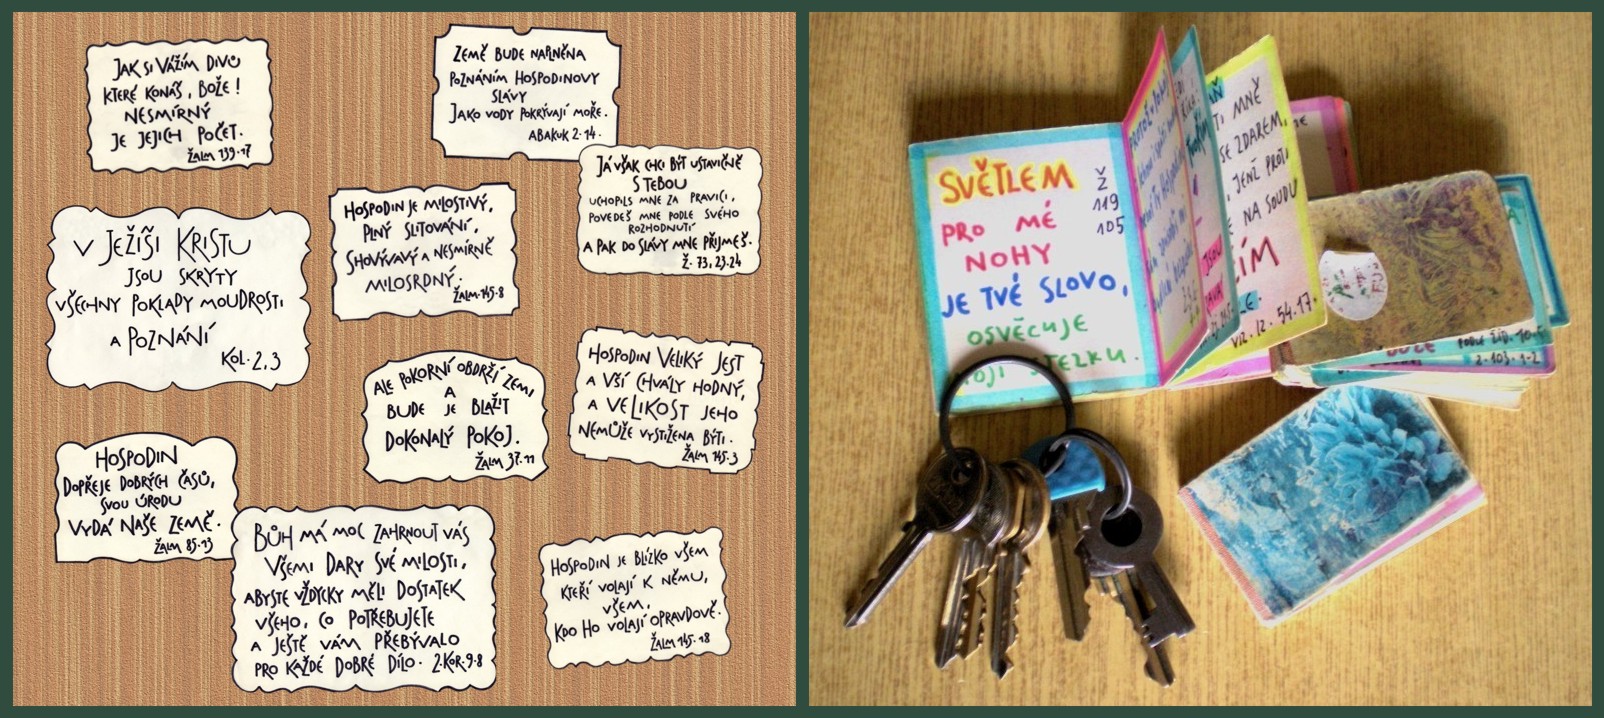 JAK SI VÁŽÍM DIVŮ
KTERÉ KONÁŠ, BOŽE!
NESMÍRNÝ
JE JEJICH POČET.
ŽALM 139.17
ZEMĚ BUDE NAPLNĚNA
POZNÁNÍM HOSPODINOVY
SLÁVY
JAKO VODY POKRÝVAJÍ MOŘE.
ABAKUK 2.14.
JÁ VŠAK CHCI BÝT USTAVIČNĚ
S TEBOU
UCHOPILS MNE ZA PRAVICI,
POVEDEŠ MNE PODLE SVÉHO
ROZHODNUTÍ
A PAK DO SLÁVY MNE PŘIJMEŠ.
Ž. 73, 23.24
HOSPODIN JE MILOSTIVÝ,
PLNÝ SLITOVÁNÍ,
SHOVÍVAVÝ A NESMÍRNĚ
MILOSRDNÝ.
ŽALM.145.8
V JEŽÍŠI KRISTU
JSOU SKRYTY
VŠECHNY POKLADY MOUDROSTI
A POZNÁNÍ
KOL. 2,3
ALE POKORNÍ OBDRŽÍ ZEMI
A
BUDE JE BLAŽIT
DOKONALÝ POKOJ.
ŽALM 37.11
HOSPODIN VELIKÝ JEST
A VŠÍ CHVÁLY HODNÝ,
A VELIKOST JEHO
NEMŮŽE VYSTIŽENA BÝTI.
ŽALM 145.3
HOSPODIN
DOPŘEJE DOBRÝCH ČASŮ,
SVOU ÚRODU
VYDÁ NAŠE ZEMĚ.
ŽALM 85.13
BŮH MÁ MOC ZAHRNOUT VÁS
VŠEMI DARY SVÉ MILOSTI,
ABYSTE VŽDYCKY MĚLI DOSTATEK
VŠEHO, CO POTŘEBUJETE
A JEŠTĚ VÁM PŘEBÝVALO
PRO KAŽDÉ DOBRÉ DÍLO. 2.KOR.9.8
HOSPODIN JE BLÍZKO VŠEM
KTEŘÍ VOLAJÍ K NĚMU,
VŠEM,
KDO HO VOLAJÍ OPRAVDOVĚ.
ŽALM 145.18
SVĚTLEM Ž
119
105
PRO MÉ
NOHY
JE TVÉ SLOVO,
OSVĚCUJE
STEZKU.
MNĚ
SE ZDAREM,
JENŽ
NA SOUDU
VIZ. IZ. 54.17.